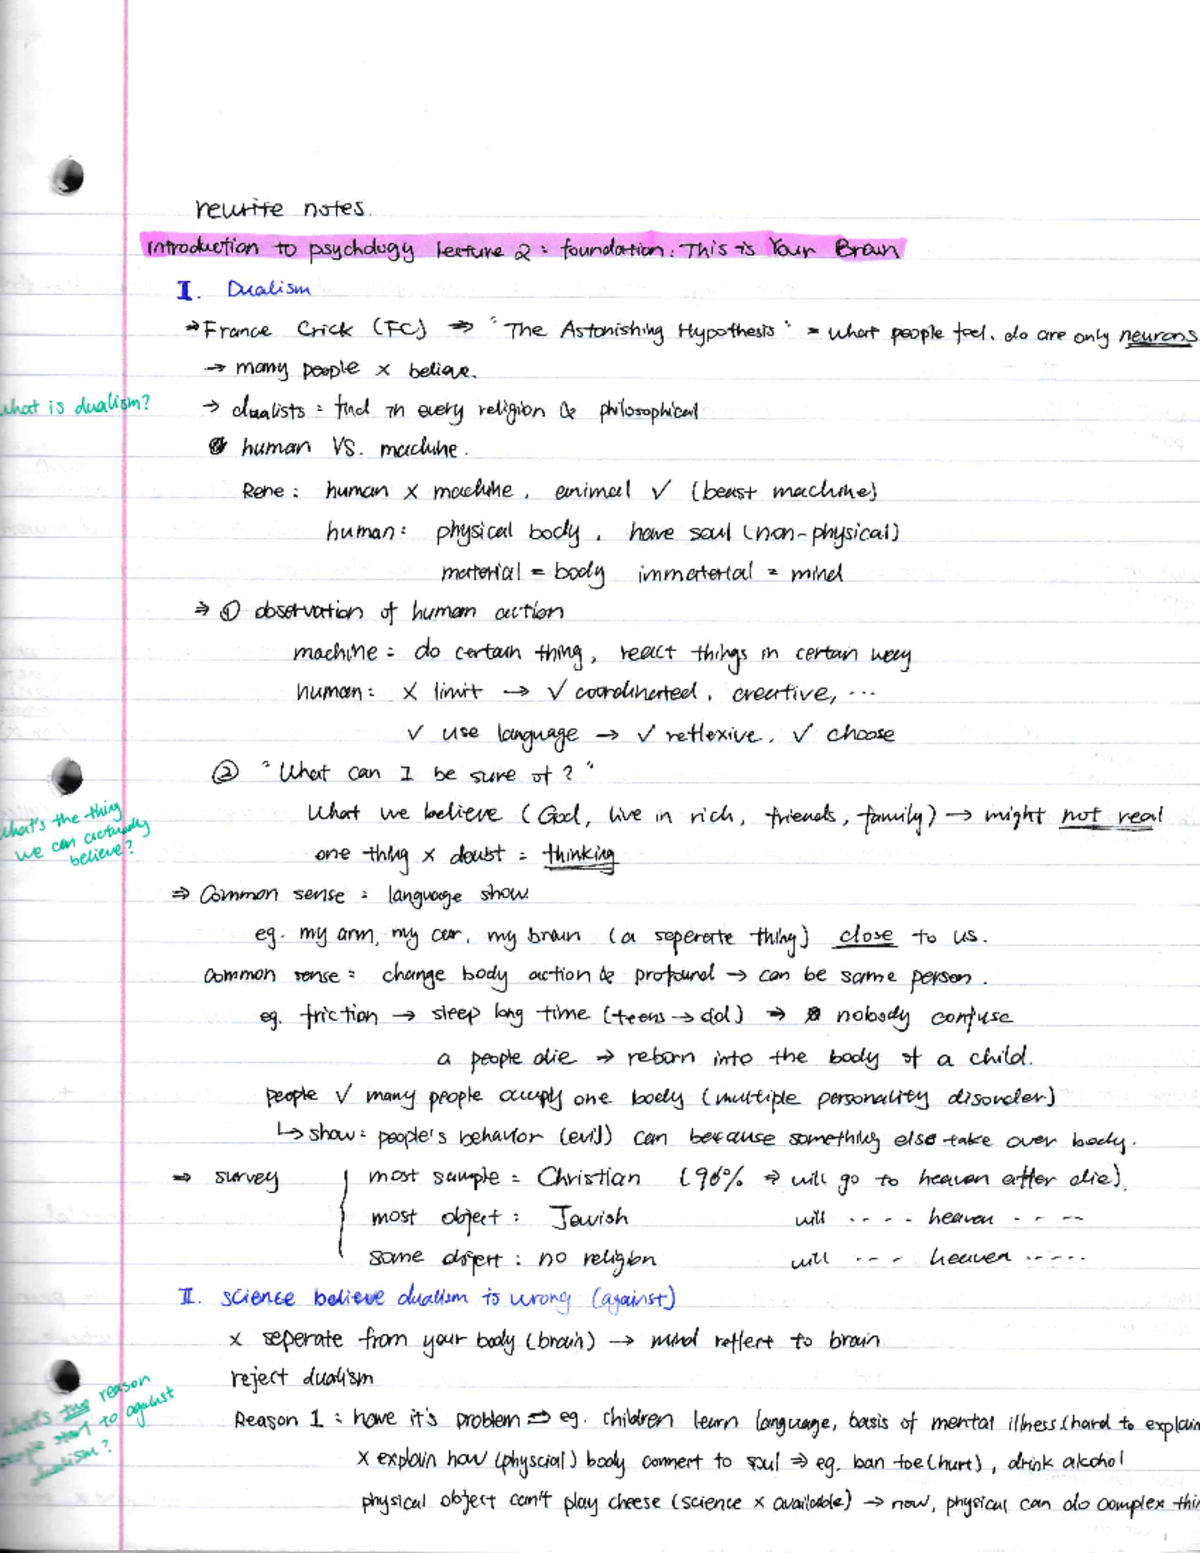 rewrite notes.
Introduction to psychology Lecture 2 : foundation : This is Your Brain
I. Dualism
→ France Crick (FC) ⇒ "The Astonishing Hypothesis" = what people feel. do are only neurons
→ many people x believe.
What is dualism?
→ dualists = find in every religion & philosophical
human VS. machine.
Rene : human x machine, animal ✓ (beast machine)
human : physical body, have soul (non-physical)
material = body immaterial = mind
⇒ ① observation of human action
machine = do certain thing, react things in certain way
human : x limit → ✓ coordinated, creative, ...
✓ use language → ✓ reflexive, ✓ choose
② "What can I be sure of?"
What's the thing we can actually believe?
What we believe (God, live in rich, friends, family) → might not real
one thing x doubt = thinking
⇒ Common sense : language show.
eg. my arm, my car, my brain (a seperate thing) close to us.
Common sense = change body action & profound → can be same person.
eg. friction → sleep long time (teens → old) → nobody confuse
a people die → reborn into the body of a child.
people ✓ many people occupy one body (multiple personality disorder)
↳ show = people's behavior (evil) can because something else take over body.
⇒ survey most sample = Christian (96% ⇒ will go to heaven after die).
most object : Jewish will ---- heaven ----
some object : no religion will --- heaven -----
II. Science believe dualism is wrong (against)
x seperate from your body (brain) → mind reflect to brain
reject dualism
What's the reason people start to against dualism?
Reason 1 : have it's problem ⇒ eg. children learn language, basis of mental illness (hard to explain
x explain how (physcial) body connert to soul ⇒ eg. ban toe (hurt), drink alcohol
physical object can't play cheese (science x available) → now, physical can do complex thin